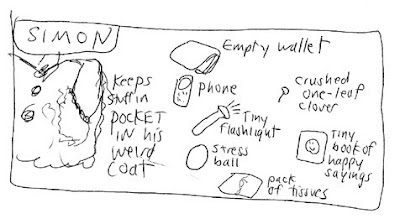 SIMON
KEEPS
STUFF IN
POCKET
IN his
WEIRD
COAT
Empty wallet
PHONE
crushed
one-leaf
clover
Tiny
flashlight
STRESS
ball
Tiny
book of
happy
sayings
pack of
tissues